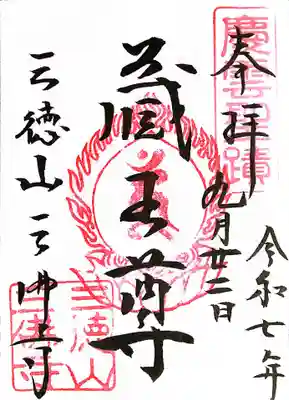 奉拝
令和七年
九月廿二日
蔵王尊
三徳山三佛寺
三徳山
三佛寺